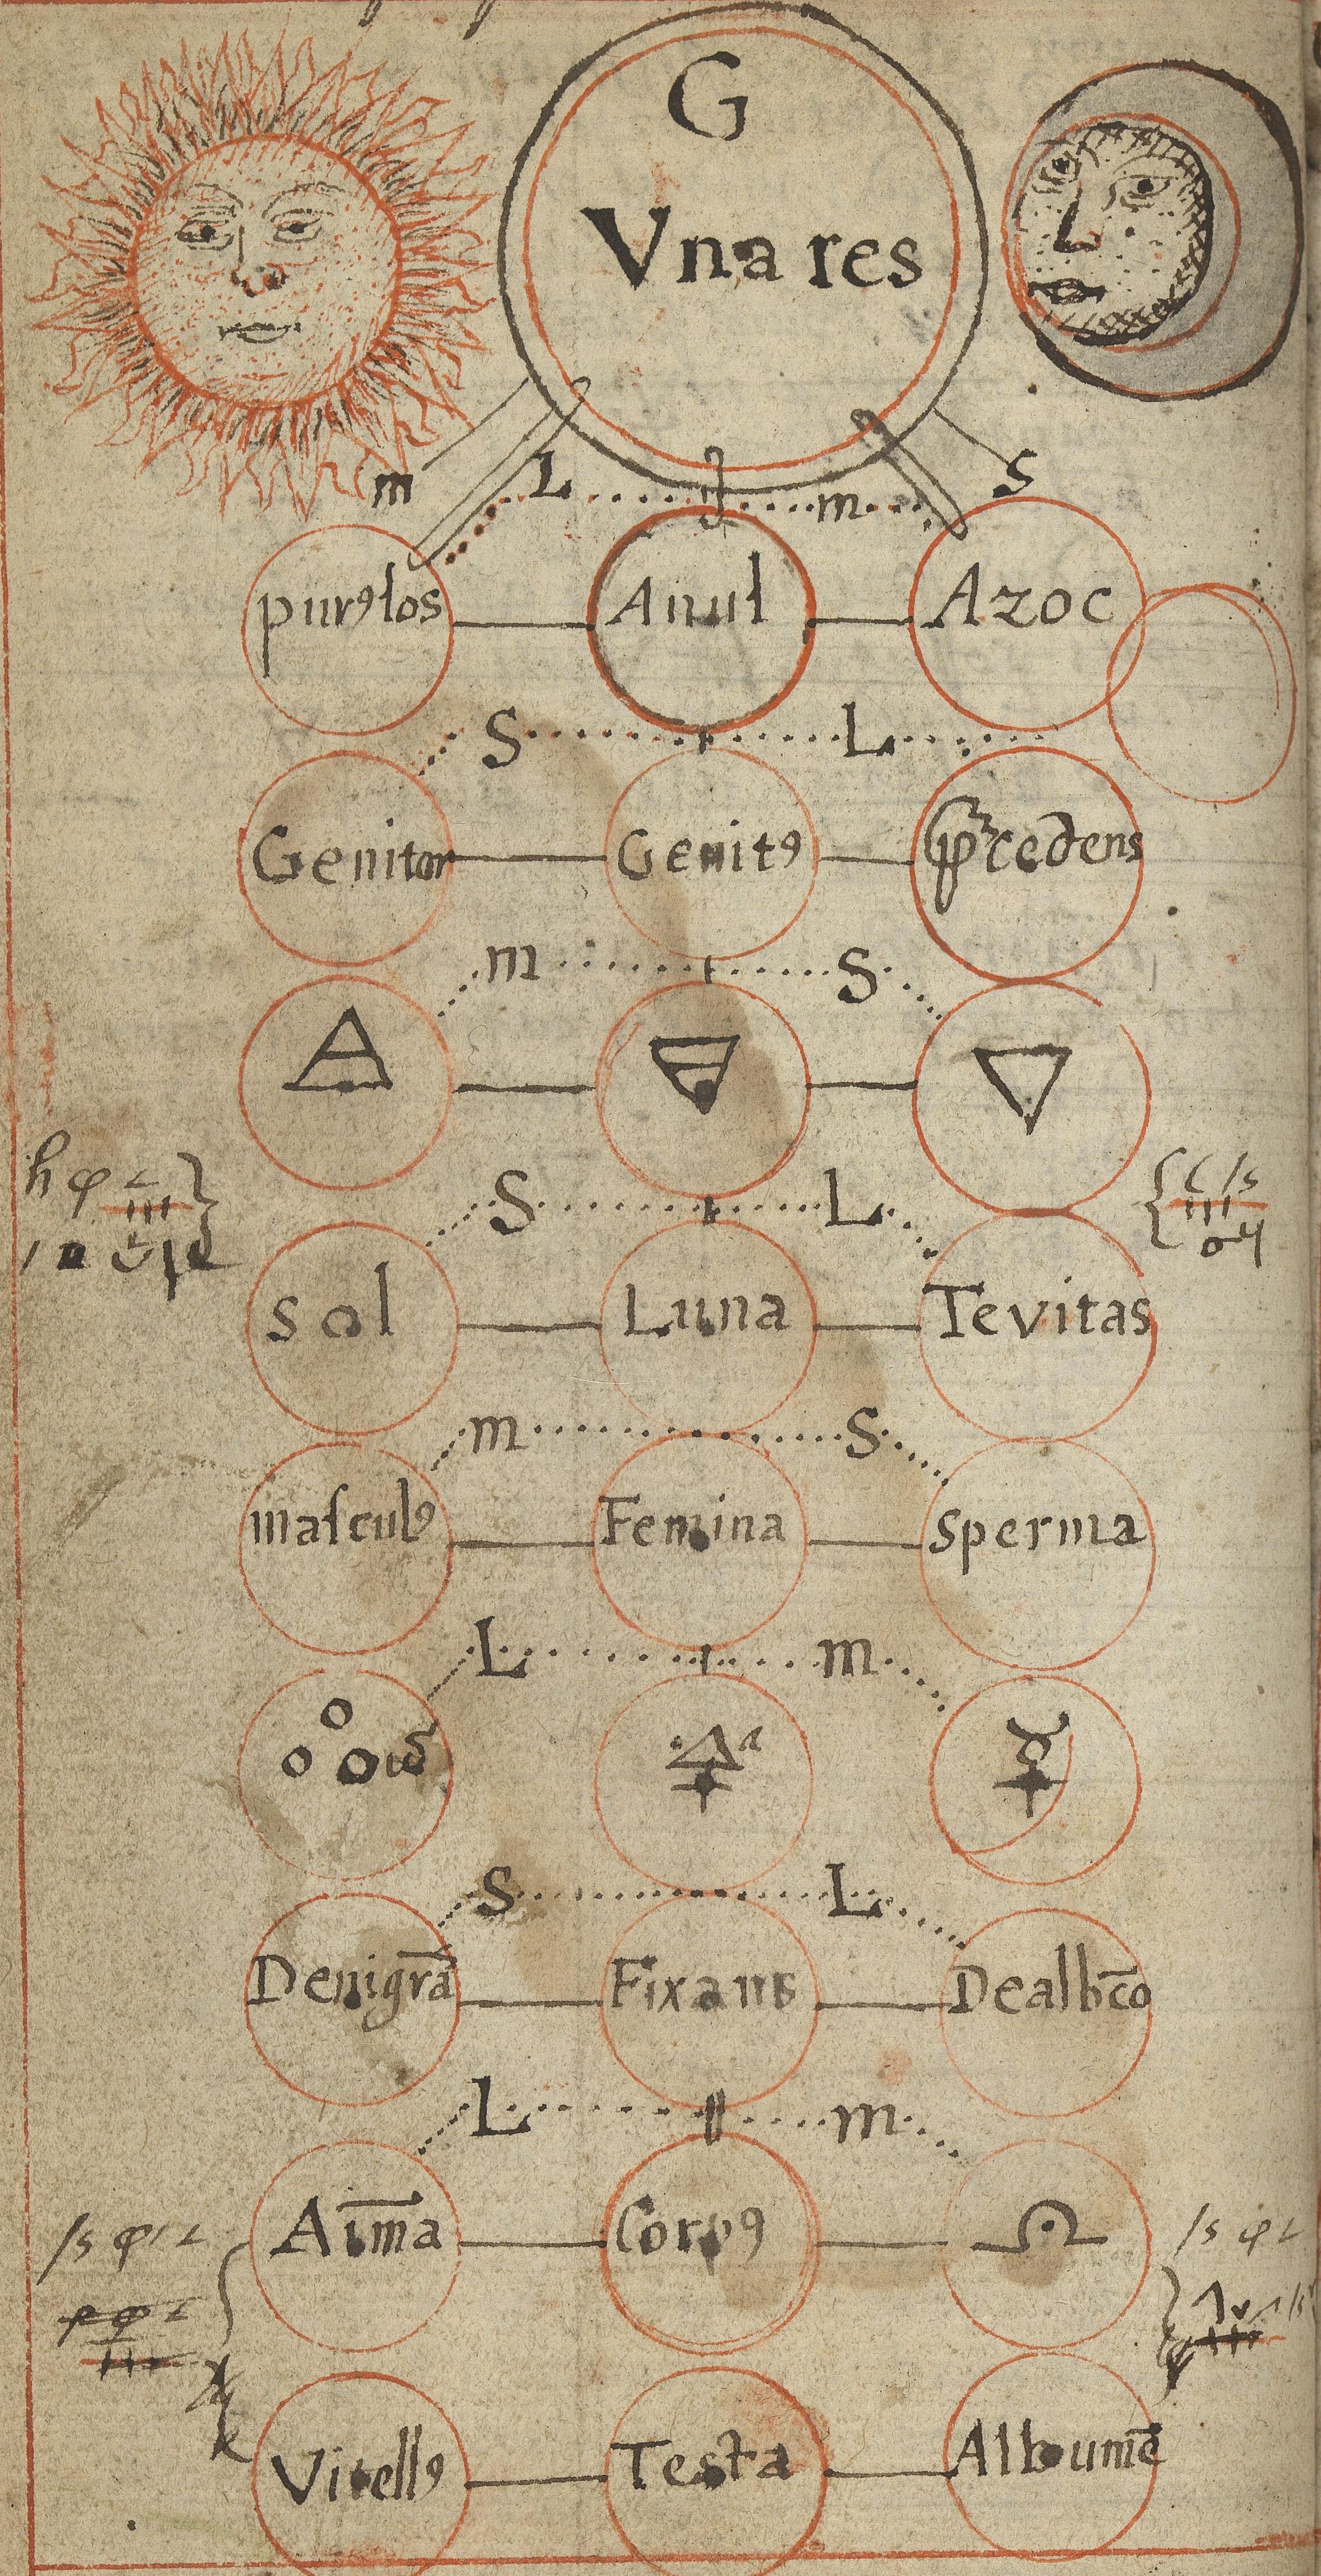 G
Vna res
m L m S
purꝯlos Anul Azoc
S L
Genitor Genitꝯ
m S
🜁 🜃 🜄
S L
sol Luna Tevitas
m S
maſculꝯ Femina sperma
L m
☿
S L
Denigrā Fixans Dealbc̄o
L m
Aīma Corpꝯ
Vitellꝯ Testa Albumē